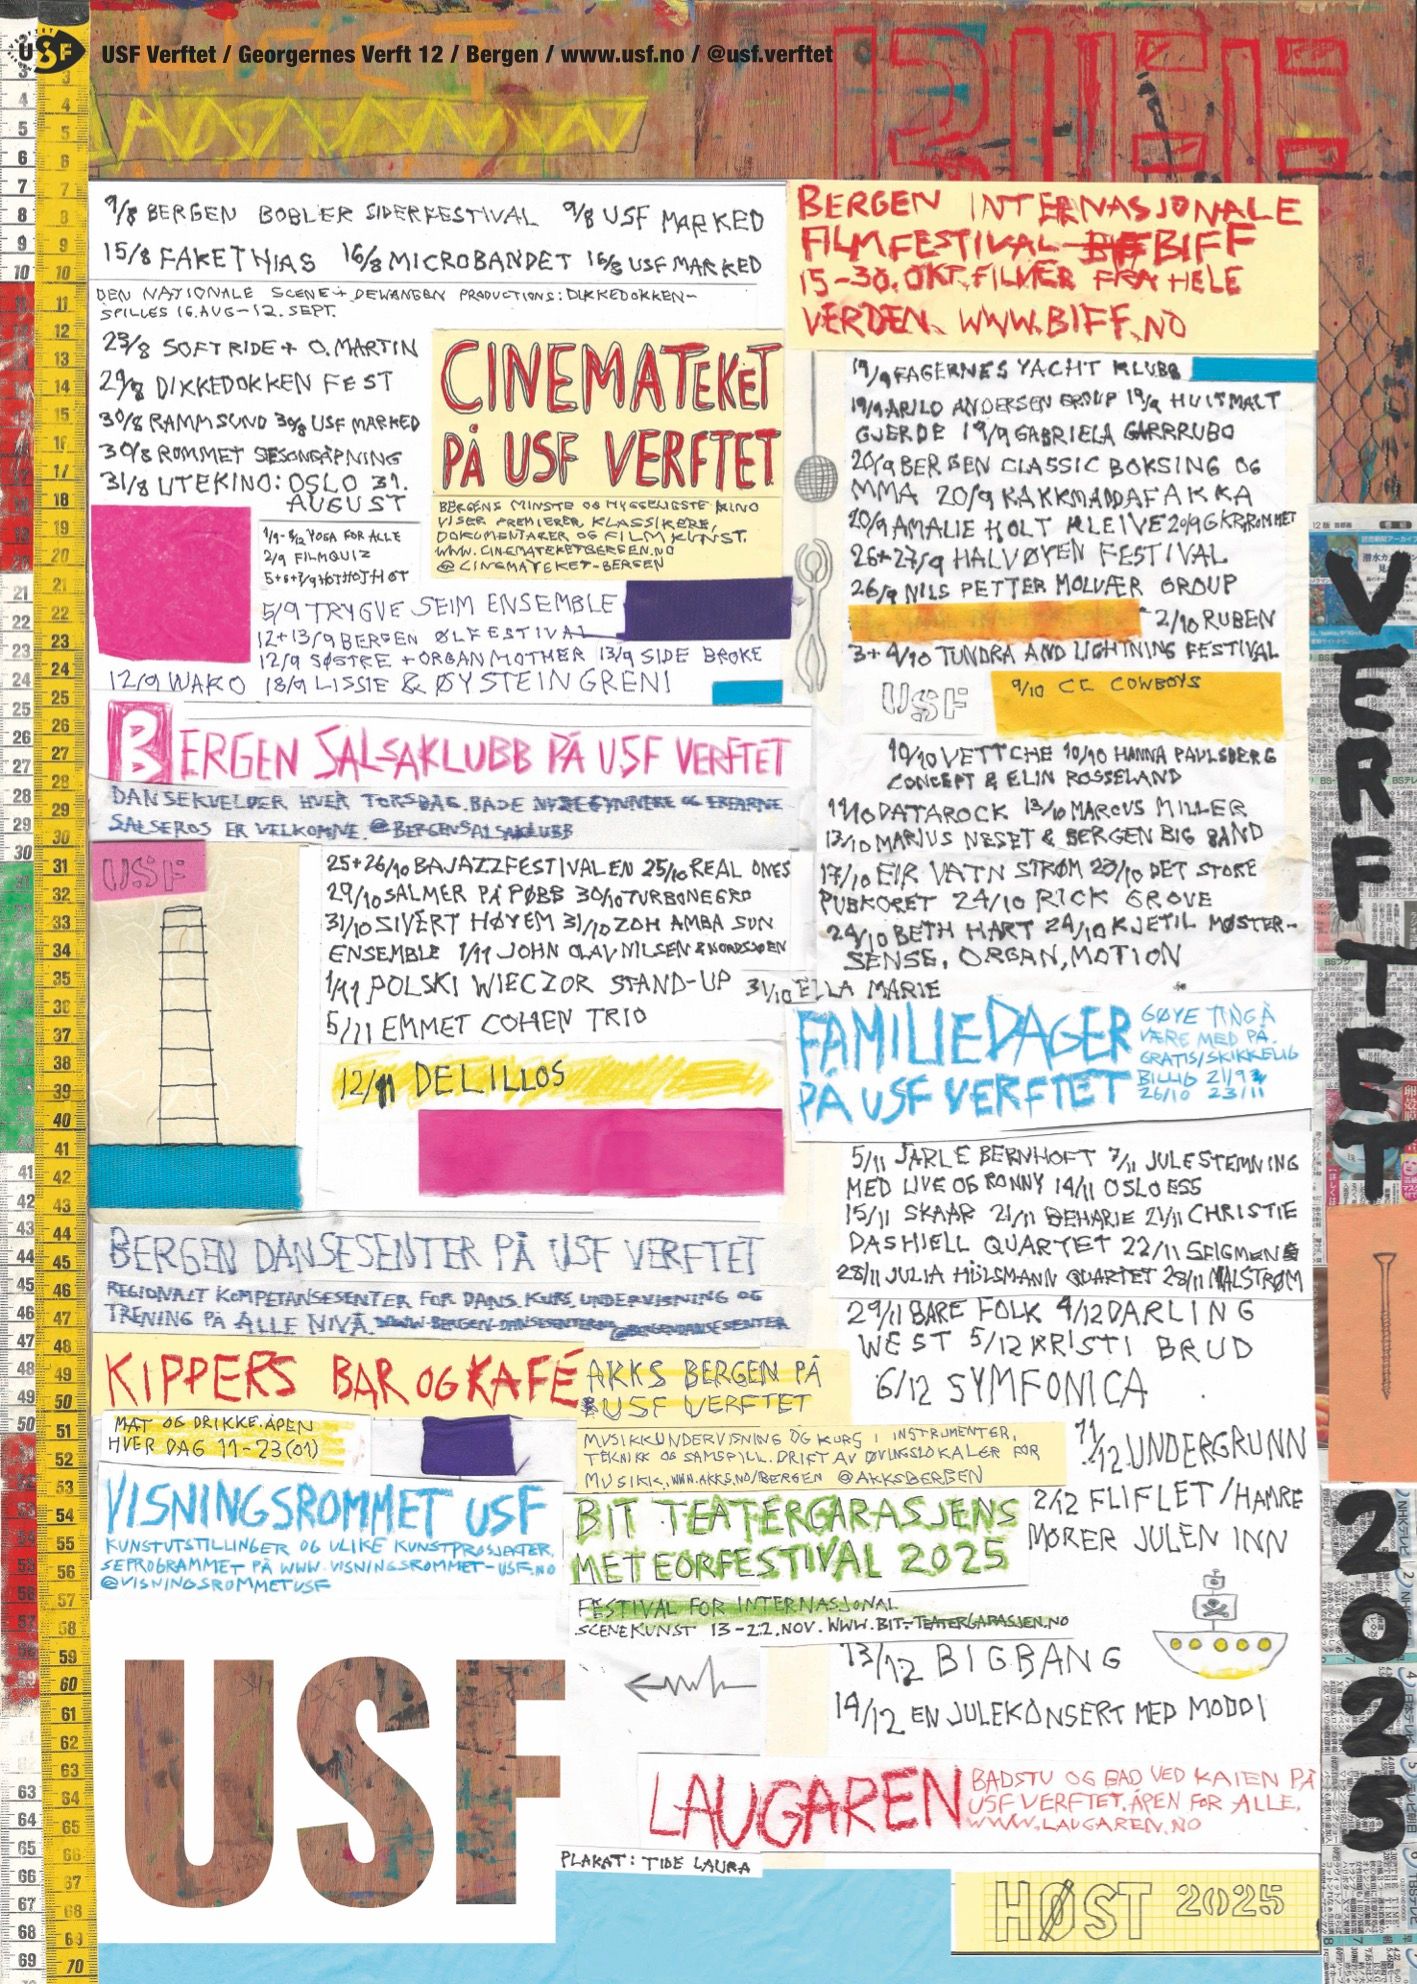 USF
USF Verftet / Georgernes Verft 12 / Bergen / www.usf.no / @usf.verftet
9/8 BERGEN BOBLER SIDERFESTIVAL 9/8 USF MARKED
15/8 FAKETHIAS 16/8 MICROBANDET 16/8 USF MARKED
DEN NATIONALE SCENE + DEWANGEN PRODUCTIONS: DIKKEDOKKEN-
SPILLES 16. AUG-12. SEPT.
23/8 SOFT RIDE + O. MARTIN
29/8 DIKKEDOKKEN FEST
30/8 RAMMSUND 30/8 USF MARKED
30/8 ROMMET SESONGÅPNING
31/8 UTEKINO: OSLO 31.
AUGUST
CINEMATEKET
PÅ USF VERFTET
BERGENS MINSTE OG HYGGELIGSTE KINO
VISER PREMIERER, KLASSIKERE,
DOKUMENTARER OG FILMKUNST.
WWW.CINEMATEKETBERGEN.NO
@CINEMATEKET-BERGEN
YOGA FOR ALLE
2/9 FILMQUIZ
5+6+7/9 HOTHOTHOT
5/9 TRYGVE SEIM ENSEMBLE
12+13/9 BERGEN ØLFESTIVAL
12/9 SØSTRE + ORGANMOTHER 13/9 SIDE BROKE
12/9 WAKO 18/9 LISSIE & ØYSTEIN GRENI
BERGEN SALSAKLUBB PÅ USF VERFTET
DANSEKVELDER HVER TORSDAG. BÅDE NYBEGYNNERE OG ERFARNE
SALSEROS ER VELKOMNE. @BERGENSALSAKLUBB
USF
25+26/10 BAJAZZFESTIVALEN 25/10 REAL ONES
29/10 SALMER PÅ PØBB 30/10 TURBONEGRO
31/10 SIVERT HØYEM 31/10 ZOH AMBA SUN
ENSEMBLE 1/11 JOHN OLAV NILSEN & NORDSJØEN
1/11 POLSKI WIECZOR STAND-UP 31/10 ELLA MARIE
5/11 EMMET COHEN TRIO
12/11 DELILLOS
BERGEN DANSESENTER PÅ USF VERFTET
REGIONALT KOMPETANSESENTER FOR DANS. KURS, UNDERVISNING OG
TRENING PÅ ALLE NIVÅ. WWW.BERGEN-DANSESENTER.NO @BERGENDANSESENTER
KIPPERS BAR OG KAFÉ
MAT OG DRIKKE. ÅPEN
HVER DAG 11-23(01)
AKKS BERGEN PÅ
USF VERFTET
MUSIKKUNDERVISNING OG KURS I INSTRUMENTER,
TEKNIKK OG SAMSPILL. DRIFT AV ØVINGSLOKALER FOR
MUSIKK. WWW.AKKS.NO/BERGEN @AKKSBERGEN
VISNINGSROMMET USF
KUNSTUTSTILLINGER OG ULIKE KUNSTPROSJEKTER.
SE PROGRAMMET PÅ WWW.VISNINGSROMMET-USF.NO
@VISNINGSROMMETUSF
BIT TEATERGARASJENS
METEORFESTIVAL 2025
FESTIVAL FOR INTERNASJONAL
SCENEKUNST 13-22. NOV. WWW.BIT-TEATERGARASJEN.NO
USF
PLAKAT: TIDE LAURA
BERGEN INTERNASJONALE
FILMFESTIVAL BIFF
15-30. OKT. FILMER FRA HELE
VERDEN. WWW.BIFF.NO
19/9 FAGERNES YACHT KLUBB
19/9 ARILD ANDERSEN GROUP 19/9 HUITMALT
GJERDE 19/9 GABRIELA GARRRUBO
20/9 BERGEN CLASSIC BOKSING OG
MMA 20/9 KAKKMADDAFAKKA
20/9 AMALIE HOLT KLEIVE 20/9 GKRROMMET
26+27/9 HALVØYEN FESTIVAL
26/9 NILS PETTER MOLVÆR GROUP
2/10 RUBEN
3+4/10 TUNDRA AND LIGHTNING FESTIVAL
USF
9/10 CC COWBOYS
10/10 VETTCHE 10/10 HANNA PAULSBERG
CONCEPT & ELIN ROSSELAND
11/10 DATAROCK 13/10 MARCUS MILLER
13/10 MARIUS NESET & BERGEN BIG BAND
17/10 EIR VATN STRØM 23/10 DET STORE
PUBKORET 24/10 RICK GROVE
24/10 BETH HART 24/10 KJETIL MØSTER-
SENSE, ORGAN, MOTION
FAMILIEDAGER
PÅ USF VERFTET
GØYE TING Å
VÆRE MED PÅ.
GRATIS/SKIKKELIG
BILLIG 21/9
26/10 23/11
5/11 JARLE BERNHOFT 7/11 JULESTEMNING
MED LIVE OG RONNY 14/11 OSLO ESS
15/11 SKAAR 21/11 BEHARIE 21/11 CHRISTIE
DASHIELL QUARTET 22/11 SEIGMEN
28/11 JULIA HÜLSMANN QUARTET 28/11 MALSTRØM
29/11 BARE FOLK 4/12 DARLING
WEST 5/12 KRISTI BRUD
6/12 SYMFONICA
11/12 UNDERGRUNN
2/12 FLIFLET/HAMRE
MØRER JULEN INN
13/12 BIGBANG
14/12 EN JULEKONSERT MED MODDI
LAUGAREN
BADSTU OG BAD VED KAIEN PÅ
USF VERFTET. ÅPEN FOR ALLE.
WWW.LAUGAREN.NO
HØST 2025
VERFTET 2025